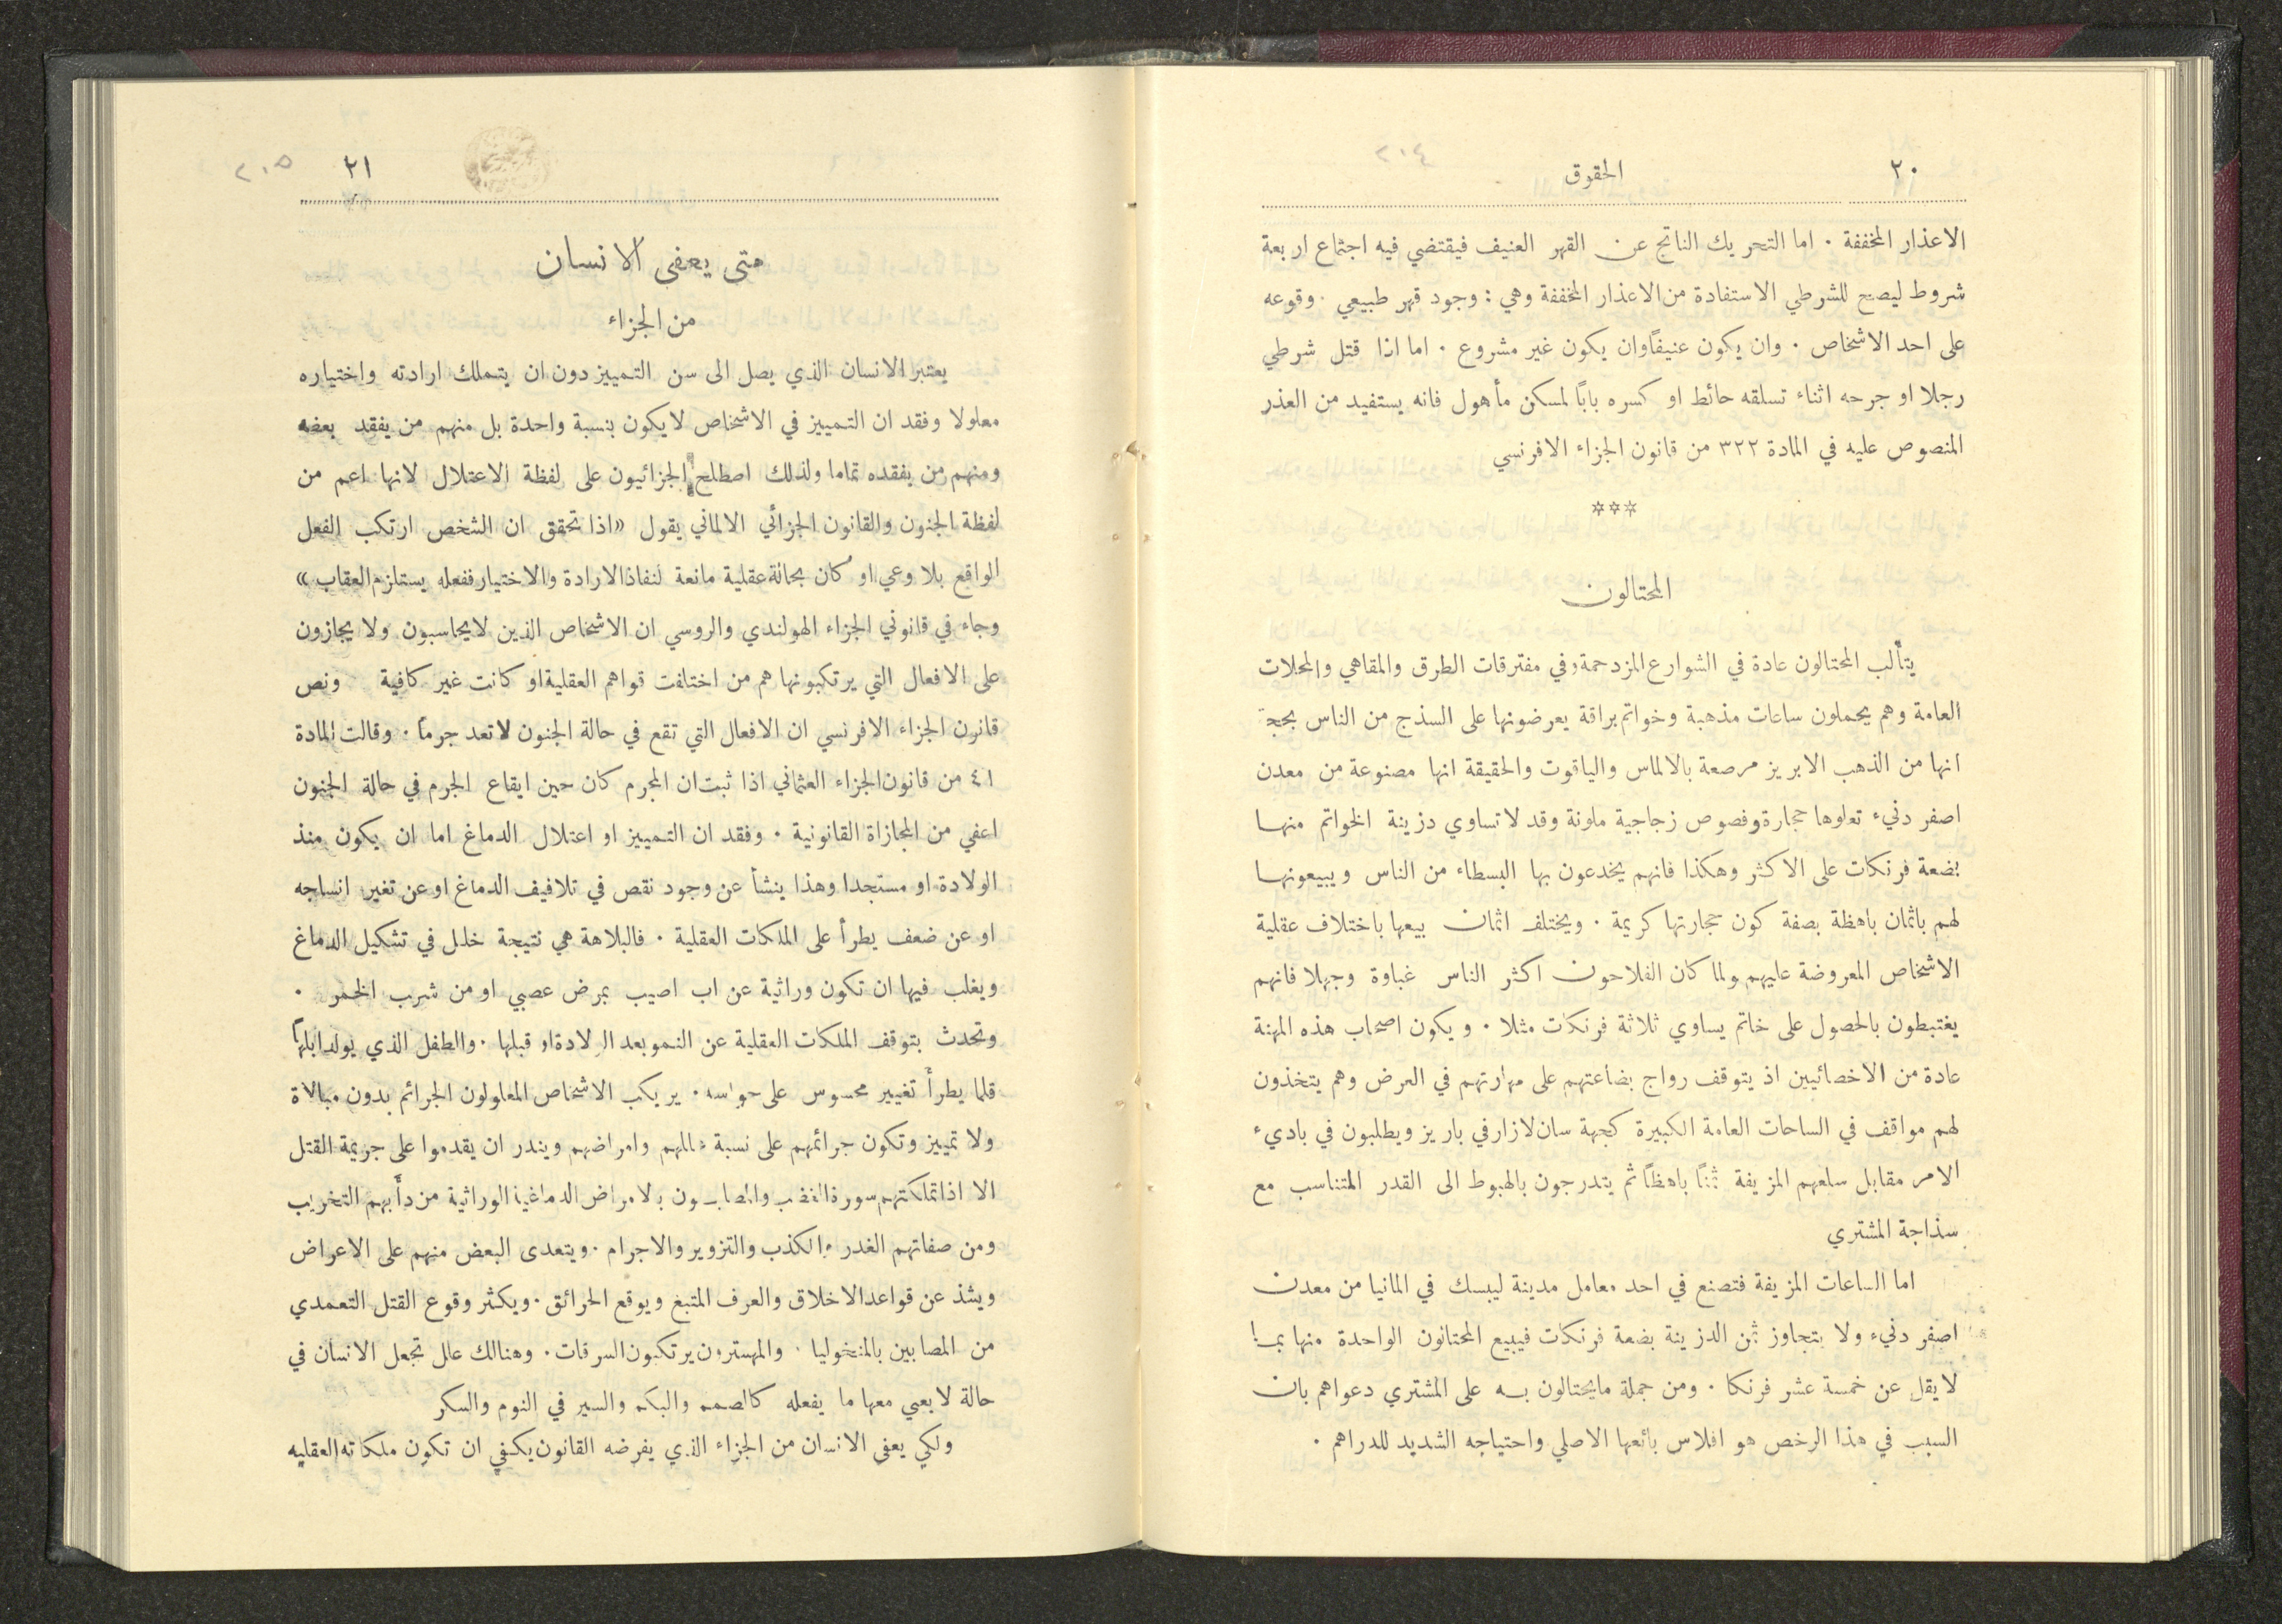 ٢٠
الحقوق
٢٠٤
الاعذار المخففة . اما التحريك الناتج عن القهر العنيف فيقتضي فيه اجتماع اربعة
شروط ليصح للشرطي الاستفادة من الاعذار المخففة وهي : وجود قهر طبيعي . وقوعه
على احد الاشخاص . وان يكون عنيفاً وان يكون غير مشروع . اما اذا قتل شرطي
رجلا او جرحه اثناء تسلقه حائط او كسره باباً لمسكن مأهول فانه يستفيد من العذر
المنصوص عليه في المادة ٣٢٢ من قانون الجزاء الافرنسي
***
المحتالون
يتألب المحتالون عادة في الشوارع المزدحمة وفي مفترقات الطرق والمقاهي والمحلات
العامة وهم يحملون ساعات مذهبة وخواتم براقة يعرضونها على السذج من الناس بحجة
انها من الذهب الابريز مرصعة بالالماس والياقوت والحقيقة انها مصنوعة من معدن
اصفر دنيء تعلوها حجارة وفصوص زجاجية ملونة وقد لا تساوي دزينة الخواتم منها
بضعة فرنكات على الاكثر وهكذا فانهم يخدعون بها البسطاء من الناس ويبيعونها
لهم باثمان باهظة بصفة كون حجارتها كريمة . ويختلف اثمان بيعها باختلاف عقلية
الاشخاص المعروضة عليهم ولما كان الفلاحون اكثر الناس غباوة وجهلا فانهم
يغتبطون بالحصول على خاتم يساوي ثلاثة فرنكات مثلا . ويكون اصحاب هذه المهنة
عادة من الاخصائيين اذ يتوقف رواج بضاعتهم على مهارتهم في العرض وهم يتخذون
لهم مواقف في الساحات العامة الكبيرة كجهة سان لازار في باريز ويطلبون في باديء
الامر مقابل سلعهم المزيفة ثمناً باهظاً ثم يتدرجون بالهبوط الى القدر المتناسب مع
سذاجة المشتري
اما الساعات المزيفة فتصنع في احد معامل مدينة ليبسك في المانيا من معدن
اصفر دنيء ولا يتجاوز ثمن الدزينة بضعة فرنكات فيبيع المحتالون الواحدة منها بما
لا يقل عن خمسة عشر فرنكا . ومن جملة ما يحتالون به على المشتري دعواهم بان
السبب في هذا الرخص هو افلاس بائعها الاصلي واحتياجه الشديد للدراهم .
٢١
٢٠٥
متى يعفى الانسان
من الجزاء
يعتبر الانسان الذي يصل الى سن التمييز دون ان يتملك ارادته واختياره
معلولا وفقد ان التمييز في الاشخاص لا يكون بنسبة واحدة بل منهم من يفقد بعضه
ومنهم من يفقده تماما ولذلك اصطلح الجزائيون على لفظة الاعتلال لانها اعم من
لفظة الجنون والقانون الجزائي الالماني يقول «اذا تحقق ان الشخص ارتكب الفعل
الواقع بلا وعي او كان بحالة عقلية مانعة لنفاذ الارادة والاختيار ففعله يستلزم العقاب»
وجاء في قانوني الجزاء الهولندي والروسي ان الاشخاص الذين لا يحاسبون ولا يجازون
على الافعال التي يرتكبونها هم من اختلفت قواهم العقلية او كانت غير كافية ونص
قانون الجزاء الافرنسي ان الافعال التي تقع في حالة الجنون لا تعد جرماً . وقالت المادة
٤١ من قانون الجزاء العثماني اذا ثبت ان المجرم كان حين ايقاع الجرم في حالة الجنون
اعفي من المجازاة القانونية . وفقد ان التمييز او اعتلال الدماغ اما ان يكون منذ
الولادة او مستجدا وهذا ينشأ عن وجود نقص في تلافيف الدماغ او عن تغير انساجه
او عن ضعف يطرأ على الملكات العقلية . فالبلاهة هي نتيجة خلل في تشكيل الدماغ
ويغلب فيها ان تكون وراثية عن اب اصيب بمرض عصبي او من شرب الخمر .
وتحدث بتوقف الملكات العقلية عن النمو بعد الولادة او قبلها . والطفل الذي يولد ابلهاً
قلما يطرأ تغيير محسوس على حواسه . يرتكب الاشخاص المعلولون الجرائم بدون مبالاة
ولا تمييز وتكون جرائمهم على نسبة عللهم وامراضهم ويندر ان يقدموا على جريمة القتل
الا اذا تملكتهم سورة الغضب والمصابون بالامراض الدماغية الوراثية من دأبهم التخريب
ومن صفاتهم الغدر والكذب والتزوير والاجرام . ويتعدى البعض منهم على الاعراض
ويشذ عن قواعد الاخلاق والعرف المتبع ويوقع الحرائق . ويكثر وقوع القتل التعمدي
من المصابين بالمنخوليا . والمهسترون يرتكبون السرقات . وهنالك علل تجعل الانسان في
حالة لا يعي معها ما يفعله كالصمم والبكم والسير في النوم والسكر
ولكي يعفى الانسان من الجزاء الذي يفرضه القانون يكفي ان تكون ملكاته العقليه